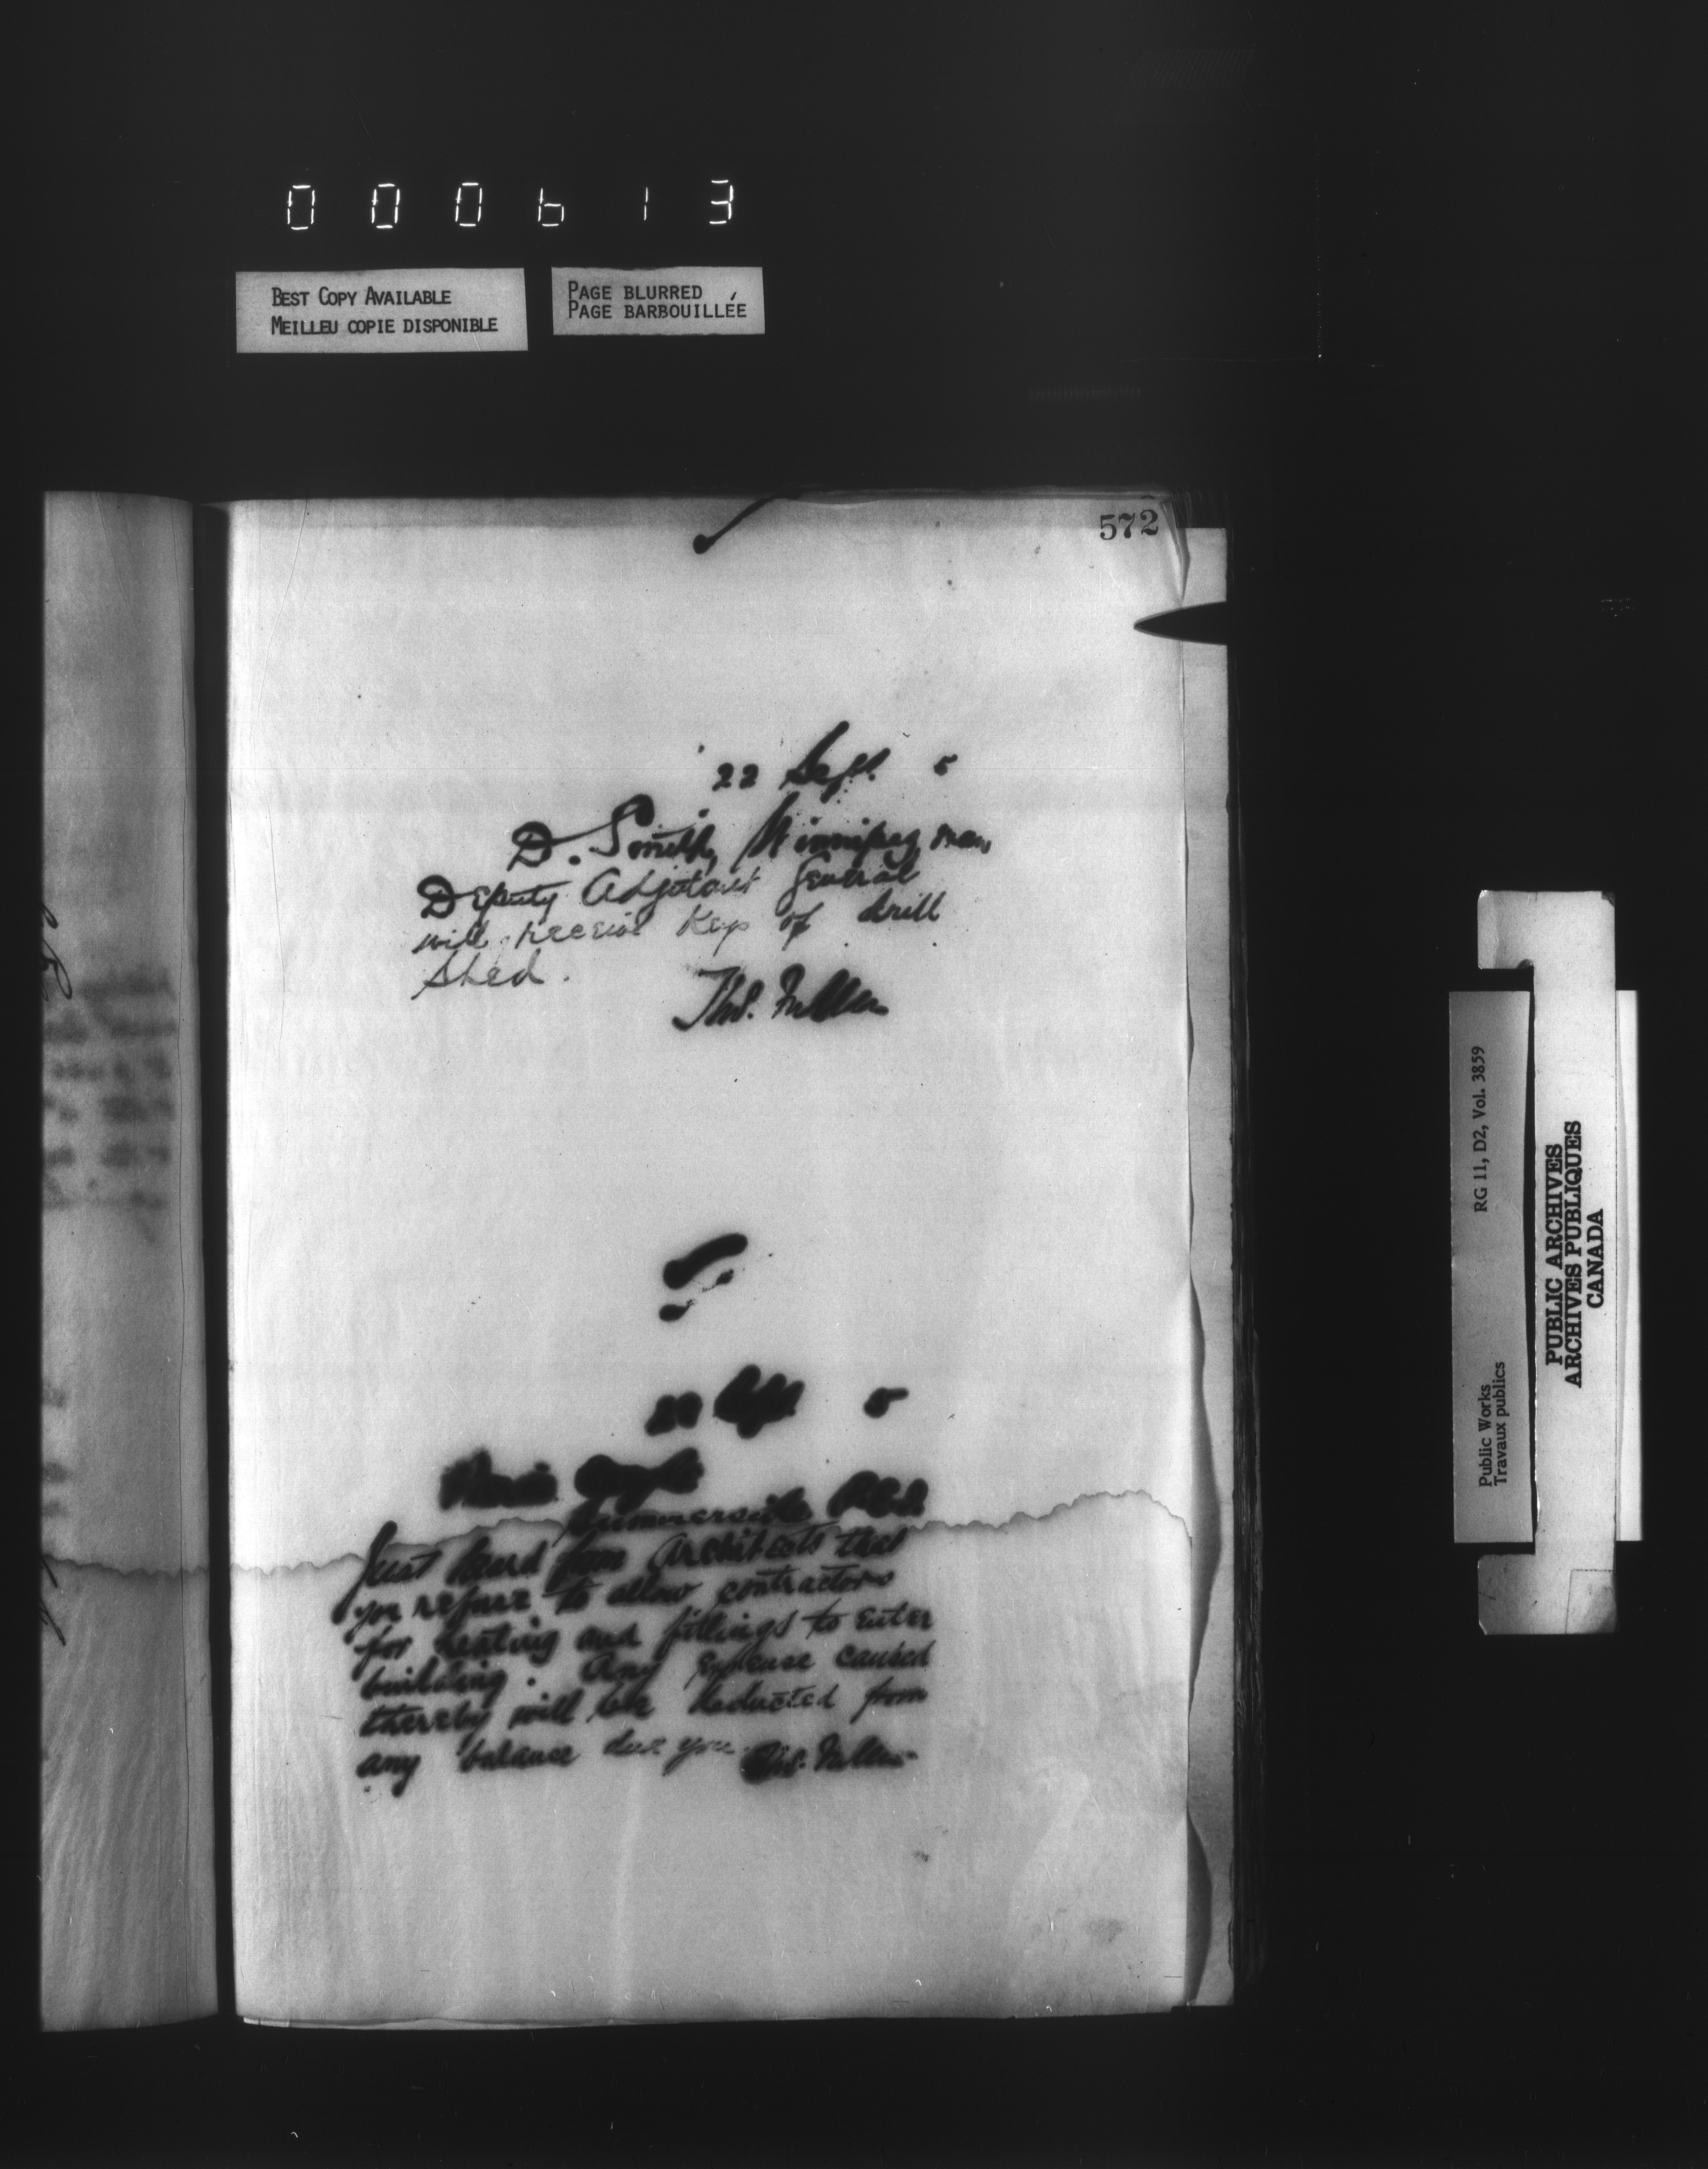 000613
BEST COPY AVAILABLE
MEILLEU COPIE DISPONIBLE
PAGE BLURRED
PAGE BARBOUILLÉE
572
22 Sept. 5
D. Smith, Winnipeg, Man,
Deputy Adjutant General
will receive Keys of drill
shed.
Summerside P.E.I.
Just heard from Architects that
you refuse to allow contractors
for heating and fittings to enter
building. Any Expense caused
thereby will be deducted from
any balance due you.
RG 11, D2, Vol. 3859
Public Works
Travaux publics
PUBLIC ARCHIVES
ARCHIVES PUBLIQUES
CANADA